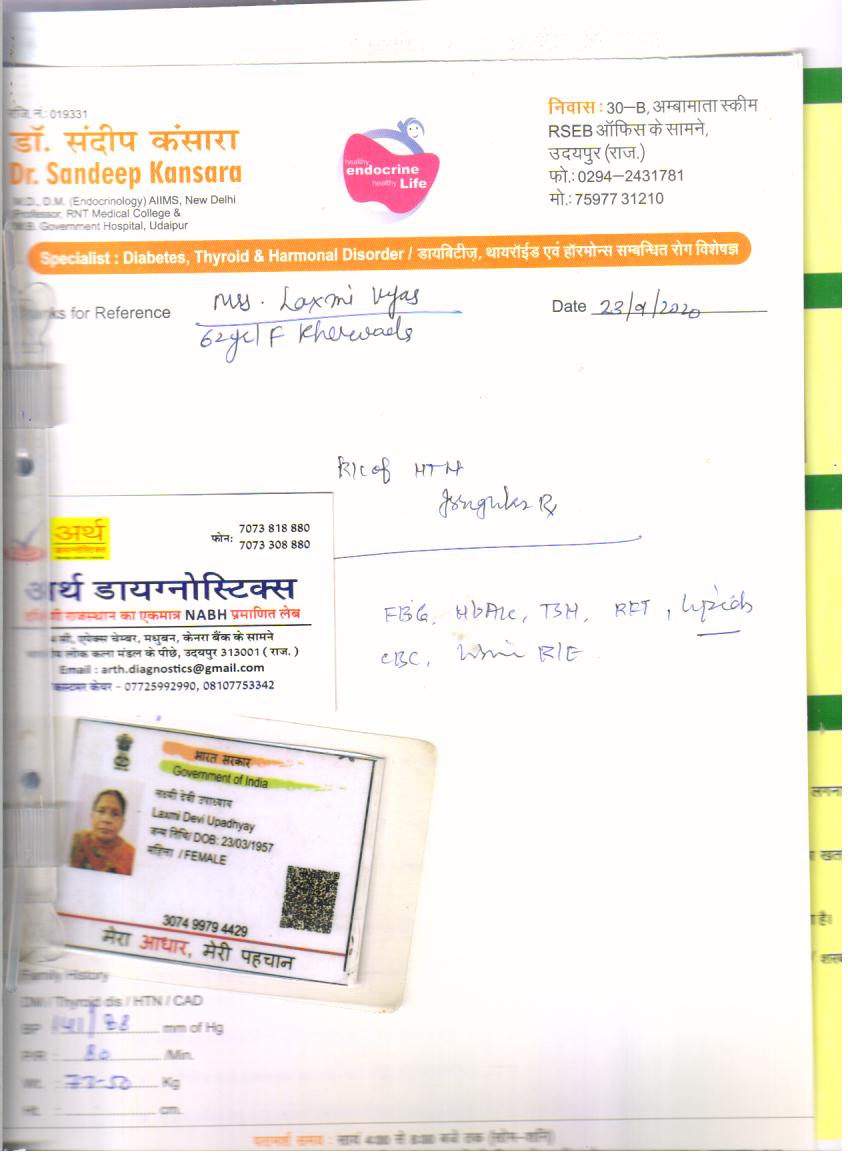 रजि. नं.: 019331
डॉ. संदीप कंसारा
Dr. Sandeep Kansara
M.D., D.M. (Endocrinology) AIIMS, New Delhi
Professor, RNT Medical College &
M.B. Government Hospital, Udaipur
healthy
endocrine
healthy Life
निवास : 30–B, अम्बामाता स्कीम
RSEB ऑफिस के सामने,
उदयपुर (राज.)
फो.: 0294–2431781
मो.: 75997 31210
Specialist : Diabetes, Thyroid & Harmonal Disorder / डायबिटीज़, थायरॉईड एवं हॉरमोन्स सम्बन्धित रोग विशेषज्ञ
Thanks for Reference Mrs. Laxmi Vyas
Date 23/9/2020
62yr/F
K/C of HTN
FBG, HbA1c, TSH, RFT, Lipids
CBC, Urine R/E
अर्थ
डायग्नोस्टिक्स
फोन: 7073 818 880
7073 308 880
अर्थ डायग्नोस्टिक्स
राजस्थान का एकमात्र NABH प्रमाणित लेब
सी, एपेक्स चेम्बर, मधुबन, केनरा बैंक के सामने
लोक कला मंडल के पीछे, उदयपुर 313001 ( राज. )
Email : arth.diagnostics@gmail.com
कस्टमर केयर - 07725992990, 08107753342
भारत सरकार
Government of India
लक्ष्मी देवी उपाध्याय
Laxmi Devi Upadhyay
जन्म तिथि/ DOB: 23/03/1957
महिला / FEMALE
3074 9979 4429
मेरा आधार, मेरी पहचान
Family History
DM / Thyroid dis / HTN / CAD
BP 141/88 mm of Hg
P/R : 80 /Min.
Wt. : 73-50 Kg
Ht. : cm.
परामर्श समय : सायं 4:00 से 8:00 बजे तक (सोम–शनि)